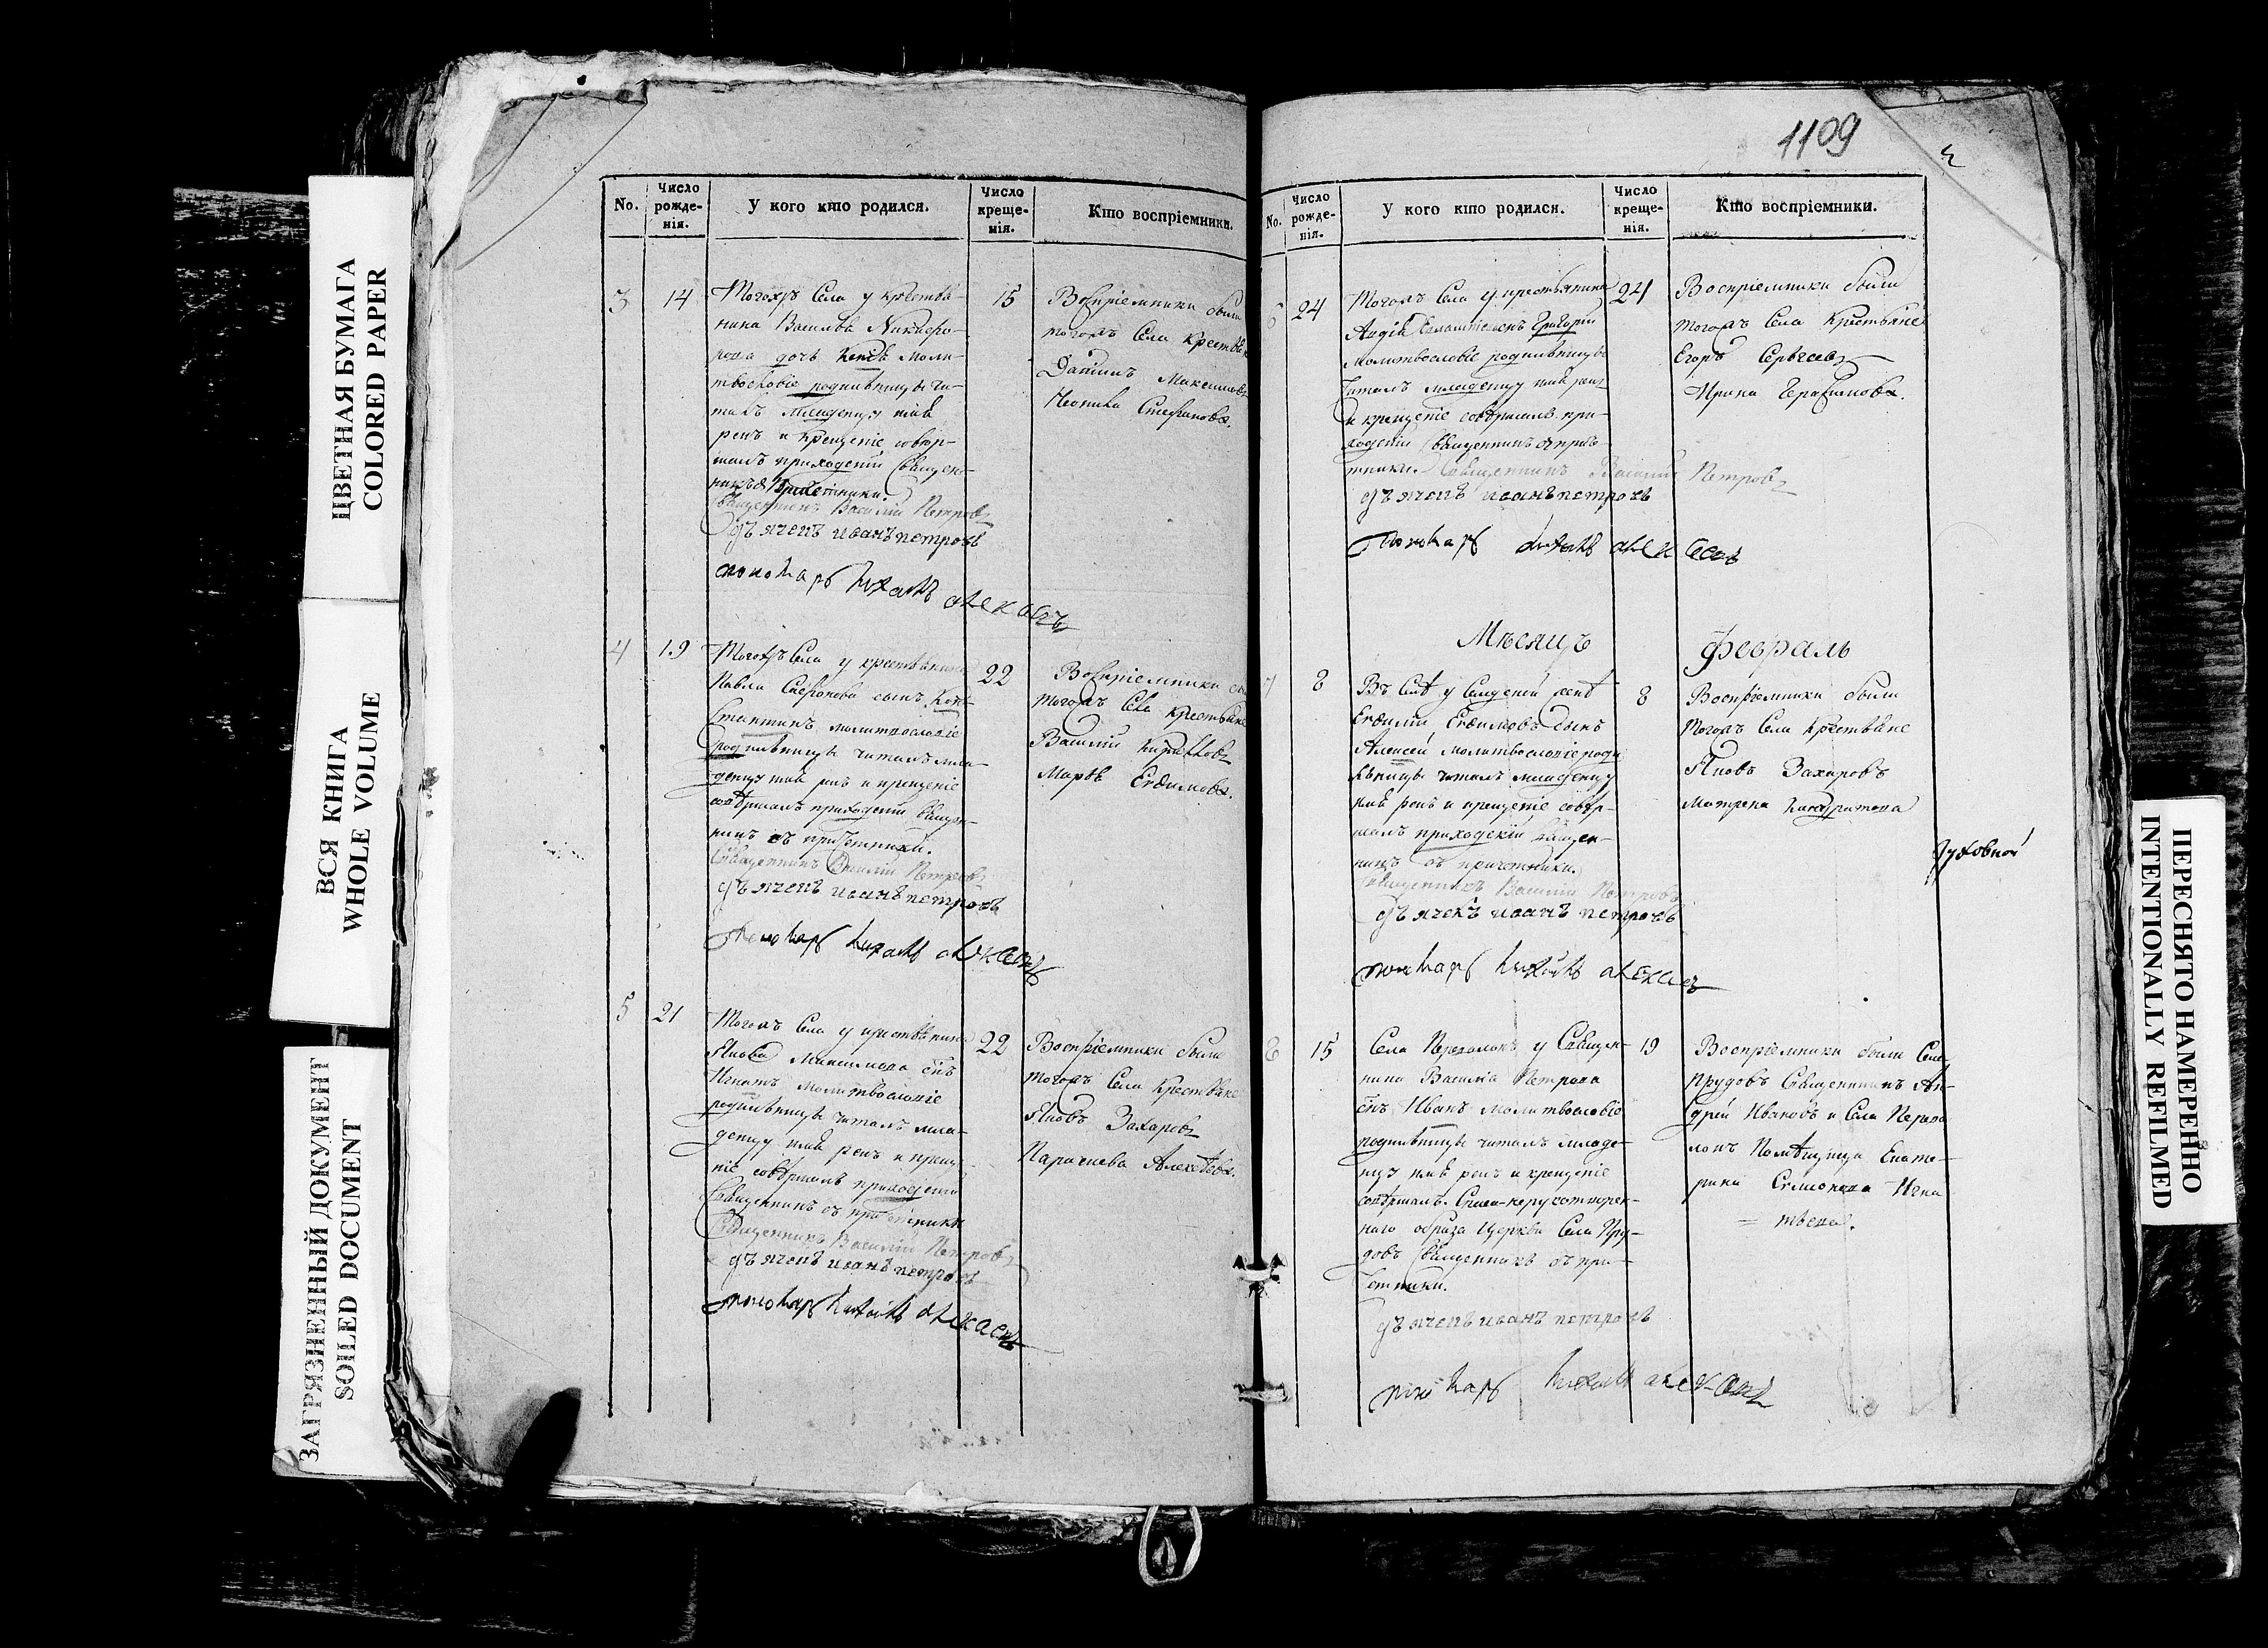 ЦВЕТНАЯ БУМАГА
COLORED PAPER
ВСЯ КНИГА
WHOLE VOLUME
ЗАГРЯЗНЕННЫЙ ДОКУМЕНТ
SOILED DOCUMENT
No.
Число рожде-нія.
У кого кто родился.
Число креще-нія.
Кто воспріемники.
3 14
Тогожъ Села у крестья-
нина Василья Никифо-
рова дочь
твословіе родильницы чи-
талъ младенцу имя
рекъ и крещеніе совер-
шалъ приходскій священ-
никъ
Священникъ Василій Петровъ
дьячекъ иванъ петровъ
пономарь алексеевъ
15
Воспріемники были
тогожъ Села крестьяне
Даниилъ Максимовъ
Стефанова.
4 19
Тогожъ Села у крестьянина
Павла сынъ Кон-
стантинъ молитвословіе
родильницы читалъ мла-
денцу имя рекъ и крещеніе
совершалъ приходскій священ-
никъ съ причетники.
Священникъ Василій Петровъ
дьячекъ иванъ петровъ
пономарь алексеевъ
22
Воспріемники
тогожъ Села крестьяне
Василій
Марья Евдимова.
5 21
Тогожъ Села у крестьянина
Якова Максимова сынъ
Игнатъ молитвословіе
родильницы читалъ мла-
денцу имя рекъ и креще-
ніе совершалъ приходскій
Священникъ съ причетники
Священникъ Василій Петровъ
дьячекъ иванъ петровъ
пономарь алексеевъ
22
Воспріемники были
тогожъ Села крестьяне
Яковъ Захаровъ
Алексѣева.
1109
No.
Число рожде-нія.
У кого кто родился.
Число креще-нія.
Кто воспріемники.
24
Тогожъ Села у крестьянина
Григорій
молитвословіе родильницы
читалъ младенцу имя рекъ
и крещеніе совершалъ при-
ходскій священникъ съ приче-
тники. Священникъ Василій Петровъ
дьячекъ иванъ петровъ
пономарь алексеевъ
24
Воспріемники были
тогожъ Села крестьяне
Егоръ Сергѣевъ
Ирина Герасимова.
Мѣсяцъ февраль
7 8
Евдимовъ сынъ
Алексей молитвословіе роди
льницы читалъ младенцу
имя рекъ и крещеніе совер-
шалъ приходскій священ-
никъ съ причетники.
Священникъ Василій Петровъ
дьячекъ иванъ петровъ
пономарь алексеевъ
8
Воспріемники были
тогожъ Села крестьяне
Яковъ Захаровъ
Матрена
Духовной
8 15
Села у Священ-
ника Василія Петрова
сынъ Иванъ молитвословіе
родильницы читалъ младе-
нцу имя рекъ и крещеніе
совершалъ Спаса-нерукотворен-
наго образа Церкви Села Пру-
довъ Священникъ съ при-
четники.
дьячекъ иванъ петровъ
пономарь алексеевъ
19
Воспріемники были Села
Прудовъ Священникъ Ан-
дрей Ивановъ и Села
Помѣщица Екате-
рина Семионова Игна
= тьева.
ПЕРЕСНЯТО НАМЕРЕННО
INTENTIONALLY REFILMED